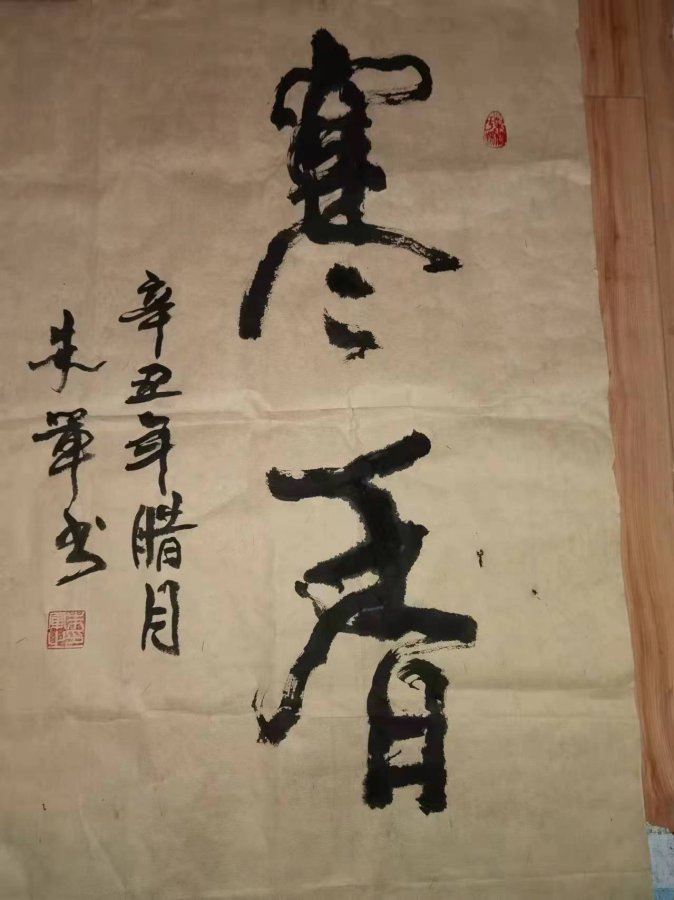 寒香
辛丑年腊月
朱軍书